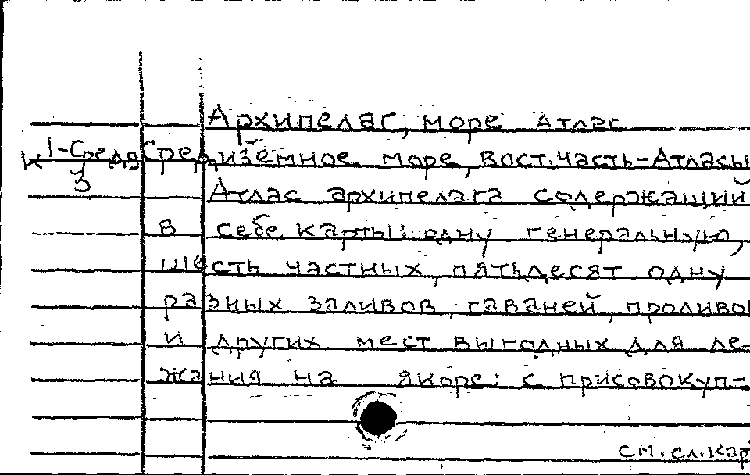 Архипелаг, море Атлас
К 1-Средз Средиземное море, вост. часть-Атласы
3
Атлас архипелага содержащий
в себе карты: одну генеральную,
шесть частных, пятьдесят одну
разных заливов, гаваней, проливов
и других мест выгодных для ле-
жания на якоре: с присовокуп-
см. сл. кар